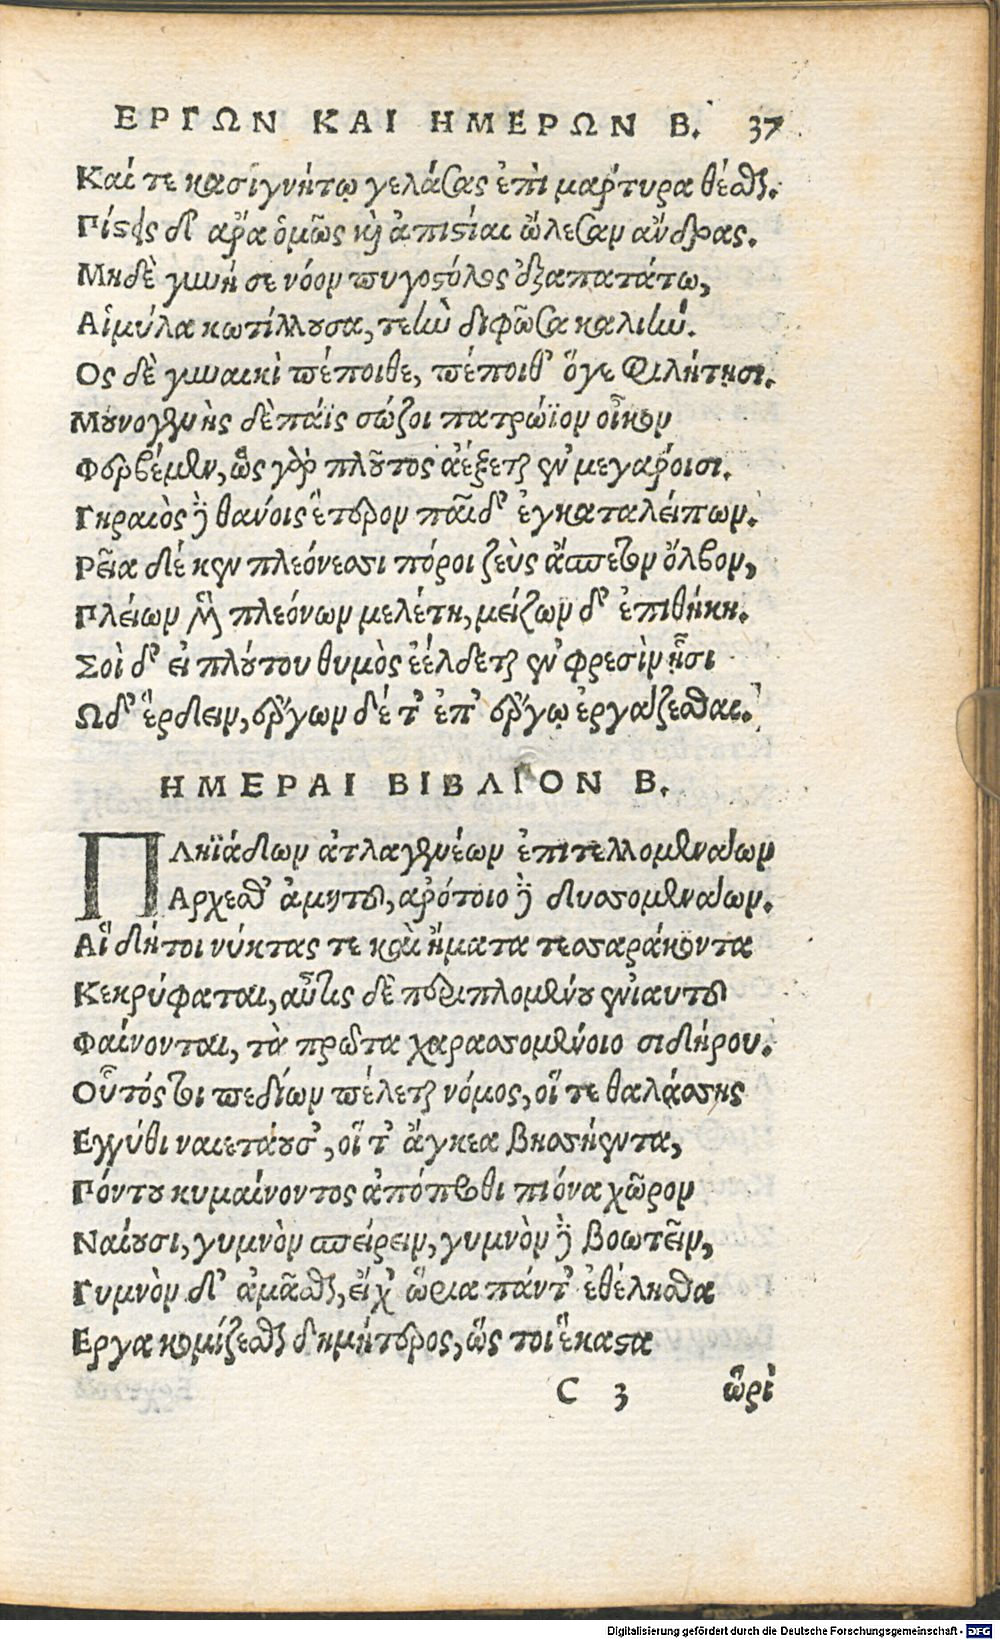 ΕΡΓΩΝ ΚΑΙ ΗΜΕΡΩΝ Β. 37
Καί τε κασιγνήτῳ γελάσας ἐπὶ μάρτυρα θέσθαι.
Πίστεις δ' ἄρα ὁμῶς καὶ ἀπιστίαι ὤλεσαν ἄνδρας.
Μηδὲ γυνή σε νόον πυγοστόλος ἐξαπατάτω,
Αἱμύλα κωτίλλουσα, τεὴν διφῶσα καλιήν.
Ος δὲ γυναικὶ πέποιθε, πέποιθ' ὅγε φιλήτῃσι.
Μουνογενὴς δὲ πάϊς σώζοι πατρώϊον οἶκον
Φερβέμεν, ὣς γὰρ πλοῦτος ἀέξεται ἐν μεγάροισι.
Γηραιὸς δὲ θανόις ἕτερον παῖδ' ἐγκαταλείπων.
Ρεῖα δέ κεν πλεόνεσσι πόροι ζεὺς ἄσπετον ὄλβον,
Πλείων μὲν πλεόνων μελέτη, μείζων δ' ἐπιθήκη.
Σοὶ δ' εἰ πλούτου θυμὸς ἐέλδεται ἐν φρεσὶν ᾗσι
Ωδ' ἕρδειν, ἔργων δέ τ' ἐπ' ἔργῳ ἐργάζεσθαι.
ΗΜΕΡΑΙ ΒΙΒΛΙΟΝ Β.
ΠΛηϊάδων ἀτλαγενέων ἐπιτελλομενάων
Αρχεσθ' ἀμητοῦ, ἀρότοιο δὲ δυσσομενάων.
Αἳ δήτοι νύκτας τε καὶ ἤματα τεσσαράκοντα
Κεκρύφαται, αὖτις δὲ περιπλομένου ἐνιαυτοῦ
Φαίνονται, τὰ πρῶτα χαρασσομένοιο σιδήρου.
Οὗτός τοι πεδίων πέλεται νόμος, οἵ τε θαλάσσης
Εγγύθι ναιετάουσ', οἵ τ' ἄγκεα βησσήεντα,
Πόντου κυμαίνοντος ἀπόπροθι πίονα χῶρον
Ναίουσι, γυμνὸν σπείρειν, γυμνὸν δὲ βοωτεῖν,
Γυμνὸν δ' ἀμᾶσθαι, εἴχ' ὥρια πάντ' ἐθέλησθα
Εργα κομίζεσθαι δημήτερος, ὥς τοι ἕκαστα
C 3 ὥρι
Digitalisierung gefördert durch die Deutsche Forschungsgemeinschaft - DFG